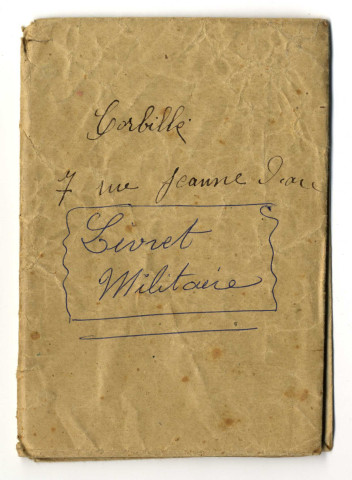 Corbillé
7 rue Jeanne d'arc
Livret
Militaire